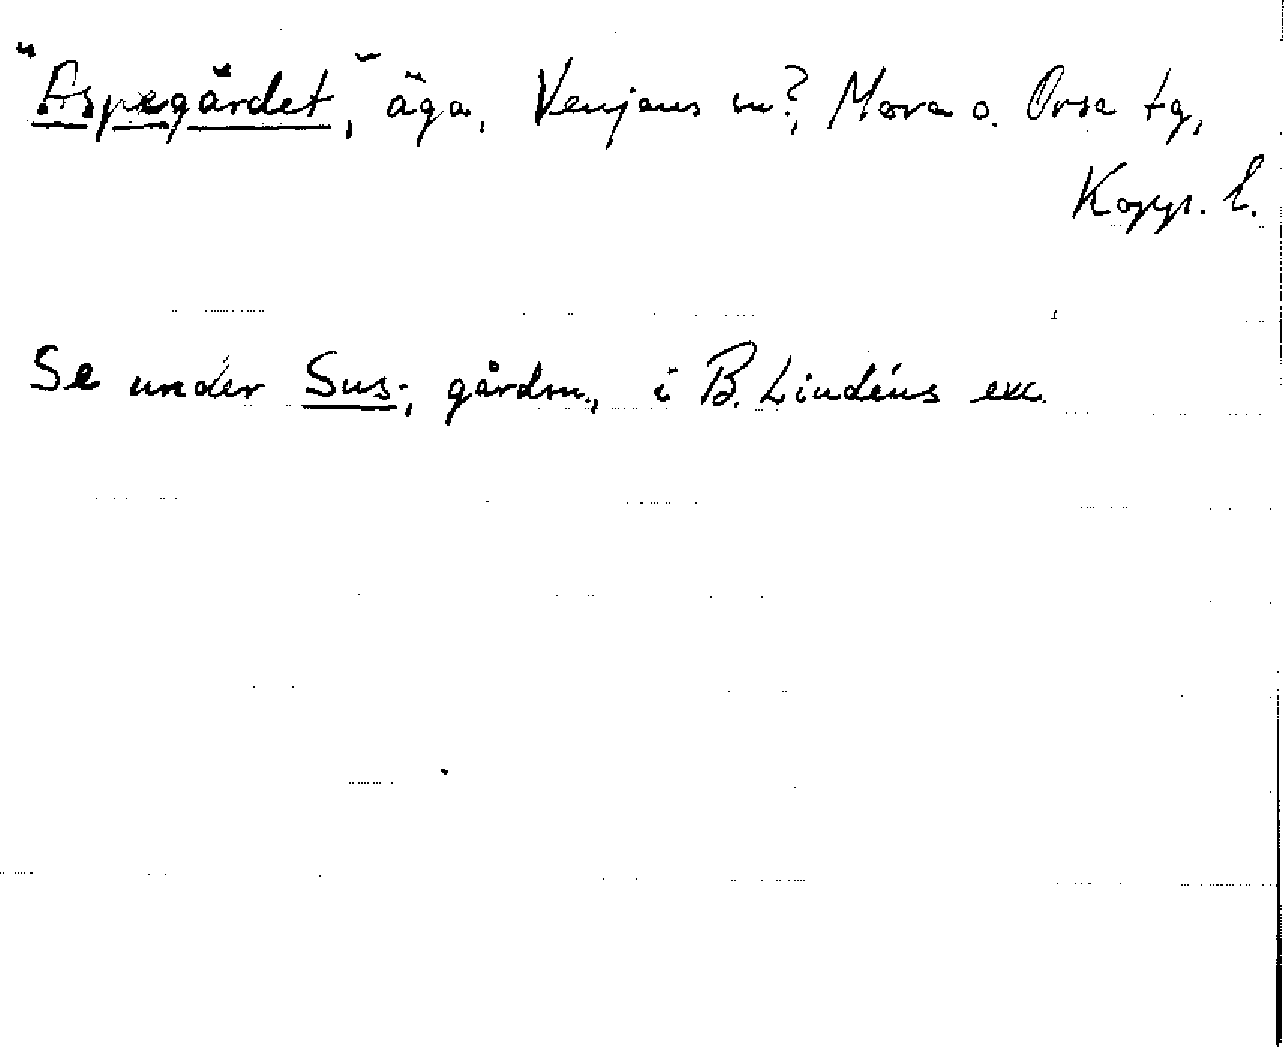 "Aspegärdet", äga, Venjans sn?, Mora o. Orsa tg,
Kopp. l.
Se under Sus-, gårdsn., i B. Lindéns exc.